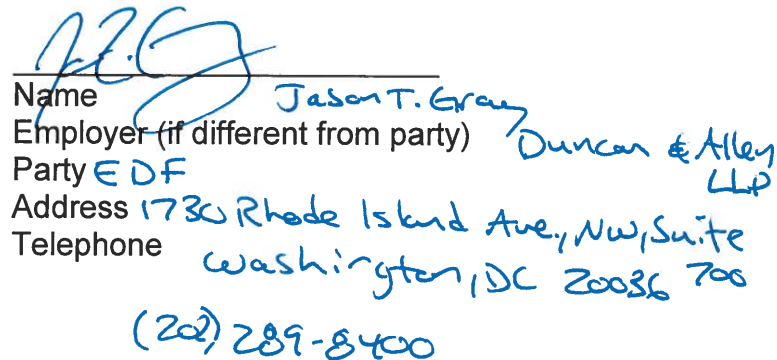 Name Jason T. Gray
Employer (if different from party) Duncan & Allen
LLP
Party EDF
Address 1730 Rhode Island Ave., NW, Suite
700
Washington, DC 20036
Telephone
(202) 289-8400